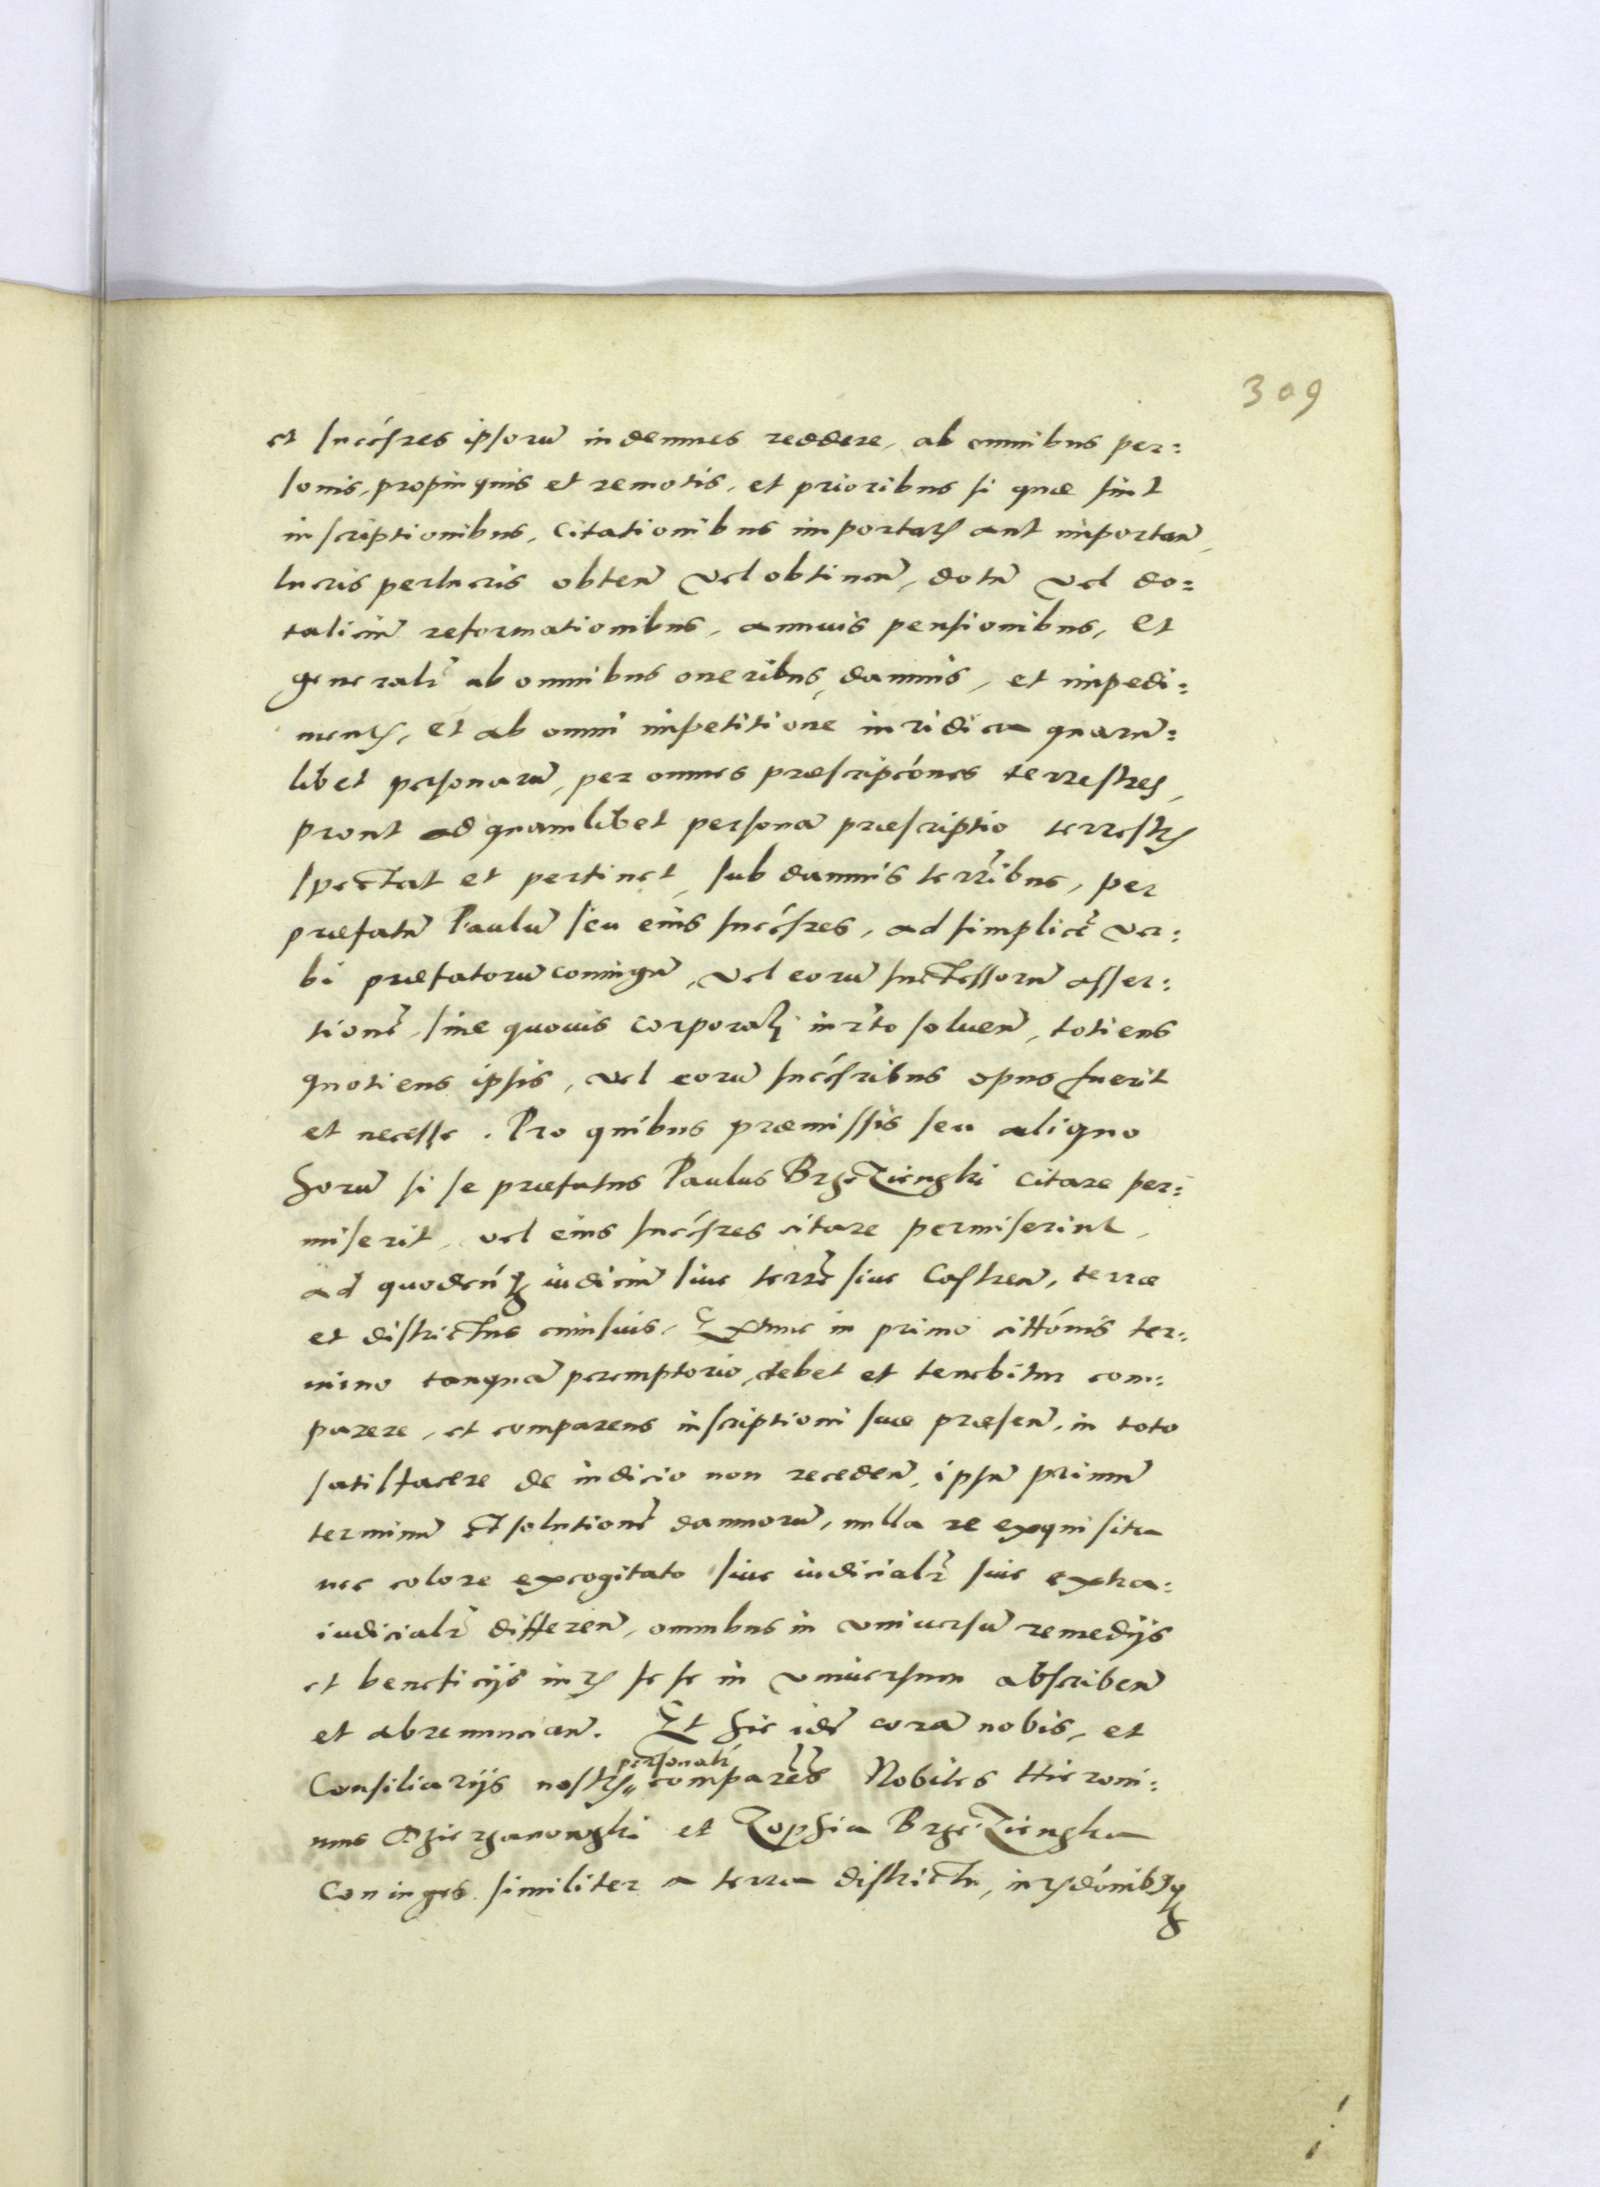 309
et succ̃sores ipsorũ indemnes reddere, ab omnibus per:
sonis, propinquis et remotis, et prioribus si quæ sint
inscriptionibus, citationibus importatis aut importan̄,
lucris perlucris obten̄ vel obtinen̄, dotũ vel do:
taliciũ reformationibus, annuis pensionibus, et
generalr̃ ab omnibus oneribus, damnis, et impedi:
mentis, et ab omni impetitione iuridica quarũ:
libet personarũ, per omnes præscripc̃ones terrestres,
prout ad quamlibet personã præscriptio terrestris
spectat et pertinet, sub damnis terr̃ibus, per
præfatũ Paulũ seu eius succ̃sores, ad simplicẽ ver:
bi præfatorũ coniugũ, vel eorũ successorũ asser:
tionẽ, sine quovis corporali iur̃to soluen̄, totiens
quotiens ipsis, vel eorũ succ̃soribus opus fuerit
et necesse. Pro quibus præmissis seu aliquo
horũ si se præfatus Paulus Brzezienski citare per:
miserit, vel eius succ̃sores citare permiserint,
ad quodcũq iudiciũ sive terrẽ sive Castren̄, terræ
et districtus cuiusuis, Extunc in primo citt̃onis ter:
mino tanquã peremptorio, debet et tenebitur com:
parere, et comparens inscriptioni suæ præsen̄, in toto
satisfacere de iudicio non receden̄, ipsũ primũ
terminũ et solutionẽ damnorũ, nulla re exquisita
nec colore excogitato sive iudicialr̃ sive extra:
iudicialr̃ differen̄, omnibus in universũ remedijs
et beneficijs iuris sese in universum abscriben̄
et abrenuncian̄. Et hic idẽ corã nobis, et
Consiliarijs nostris personalr̃ comparen̄s Nobiles Hieroni:
mus et Zophia Brzezienska
Coniuges similiter a terra districtu, iurisdic̃onibusq